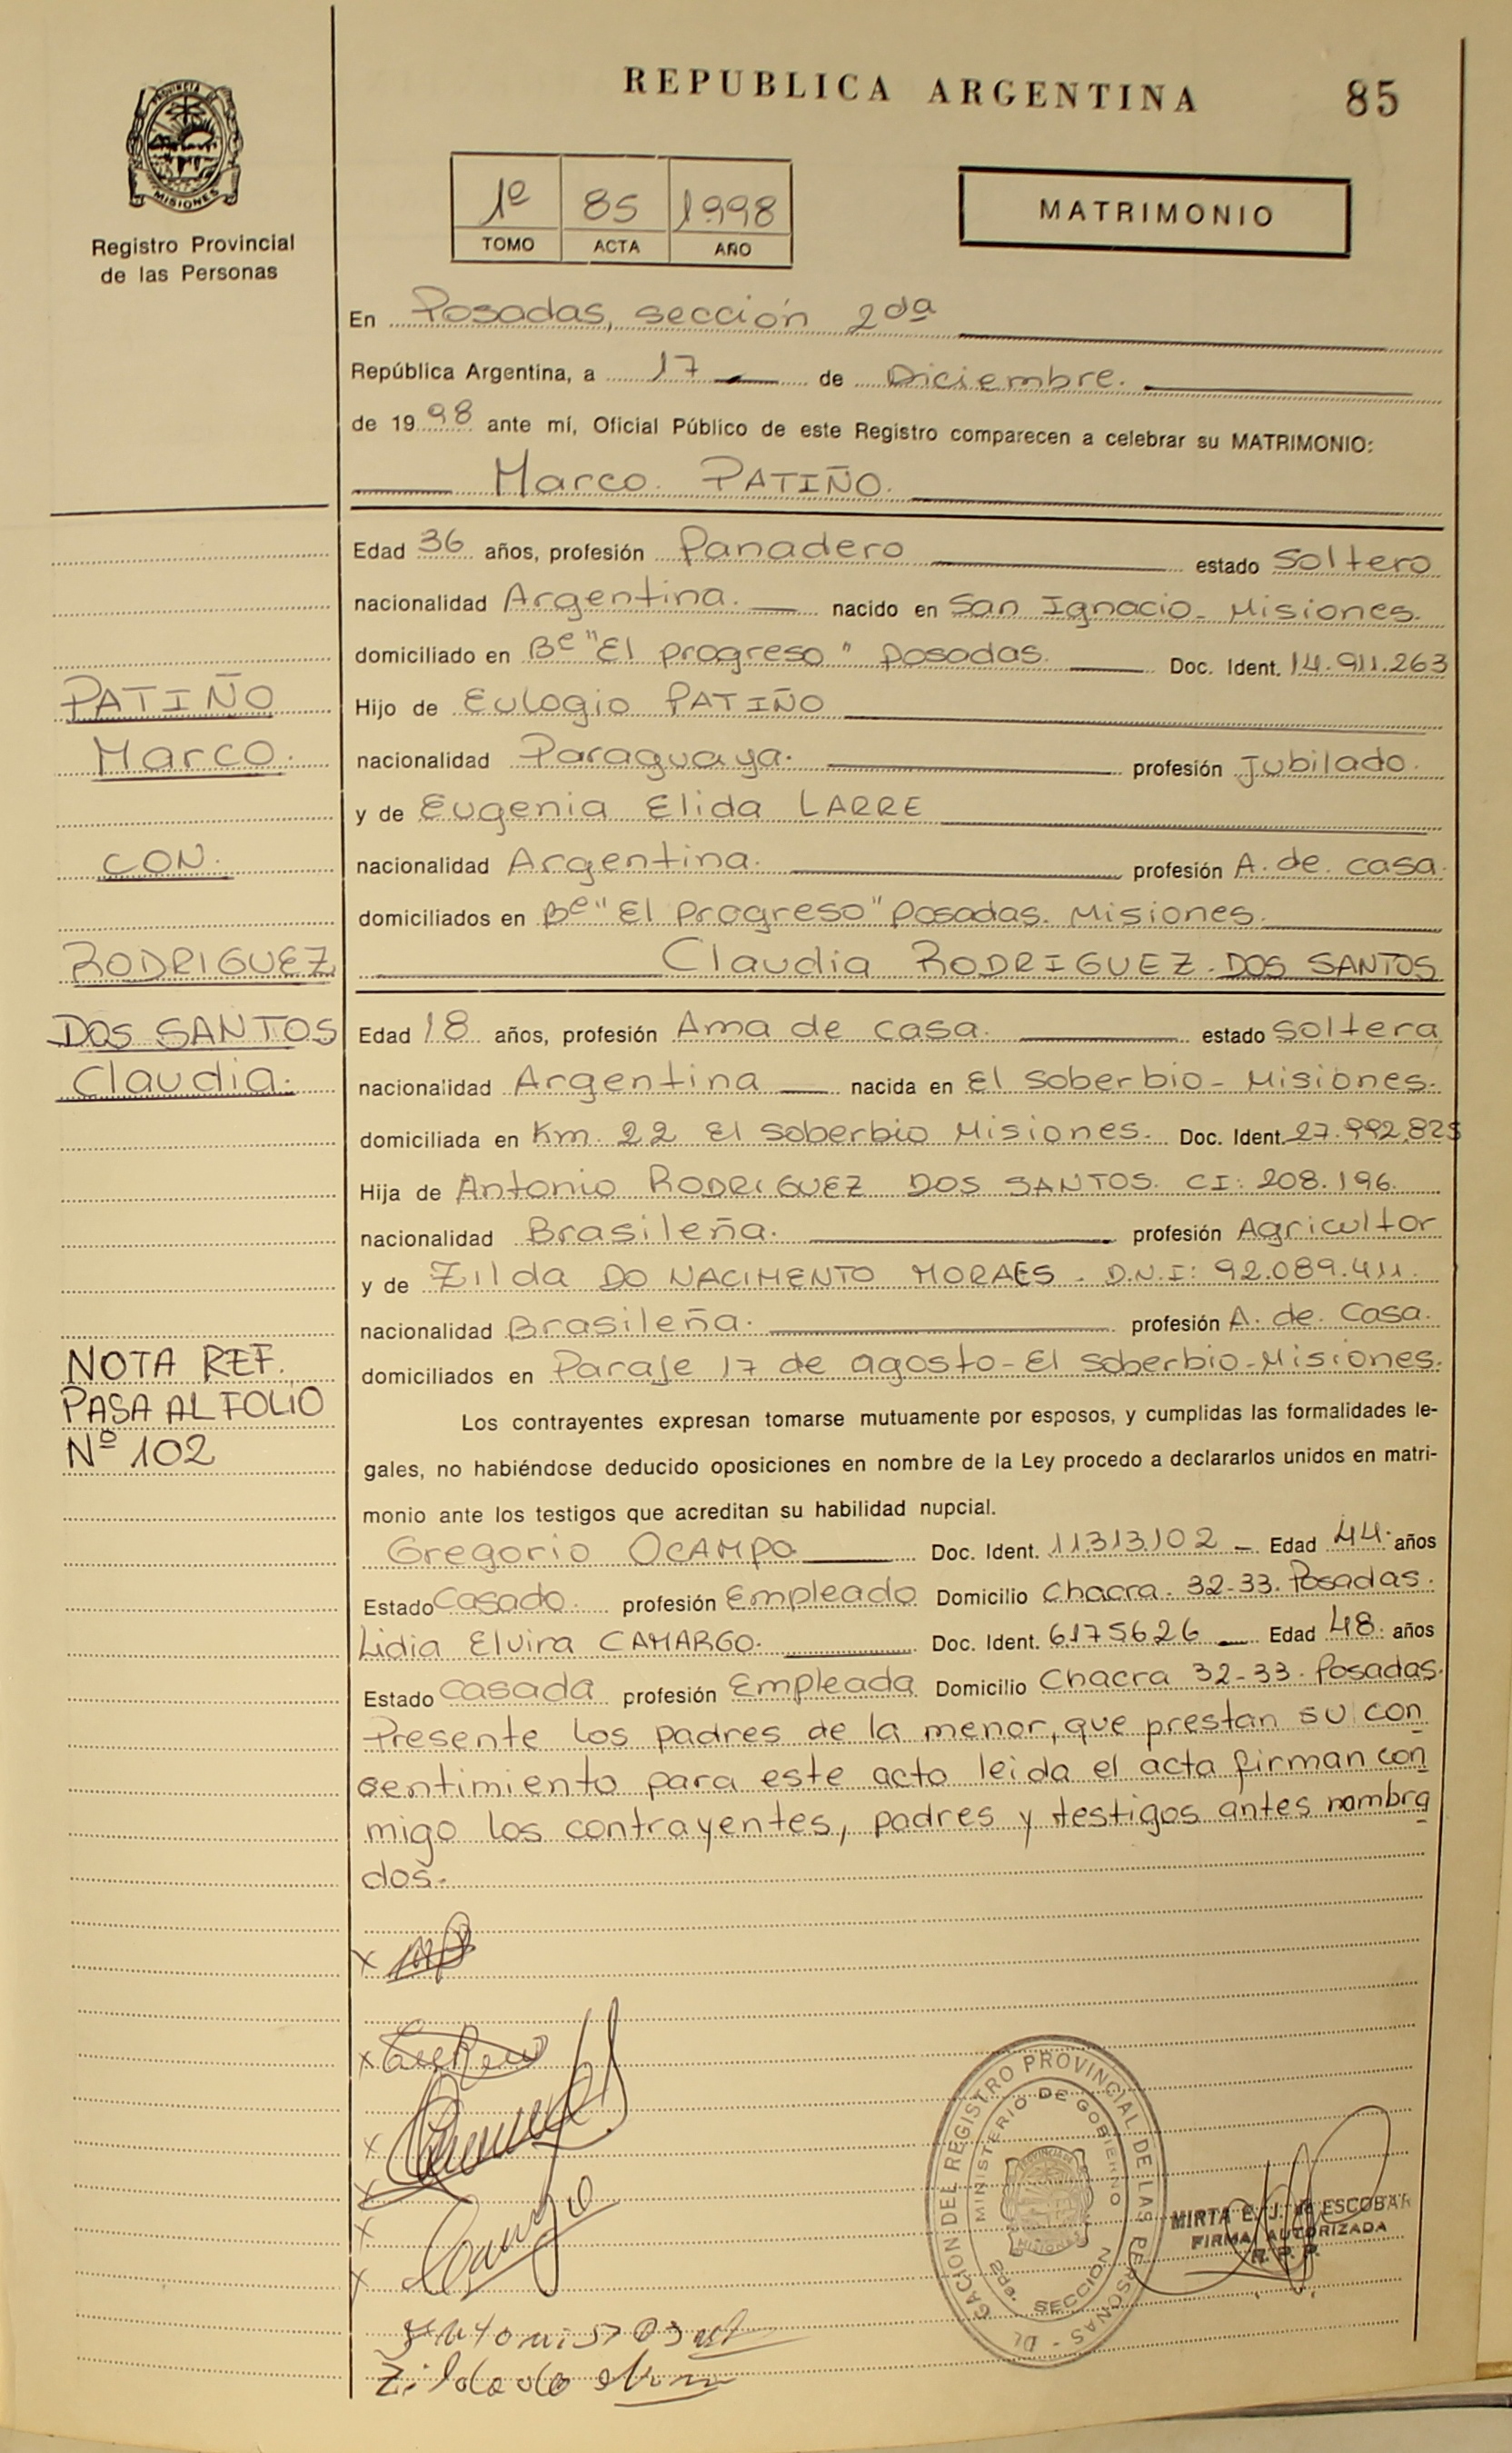 REPUBLICA ARGENTINA 85
MISIONES
Registro Provincial
de las Personas
1º 85 1998
TOMO ACTA AÑO
MATRIMONIO
En Posadas, sección 2da
República Argentina, a 17 de Diciembre.
de 1998 ante mí, Oficial Público de este Registro comparecen a celebrar su MATRIMONIO:
Marco. PATIÑO.
Edad 36 años, profesión Panadero estado Soltero
nacionalidad Argentina. nacido en San Ignacio - Misiones.
domiciliado en Bº "El progreso" posadas. Doc. Ident. 14.911.263
Hijo de Eulogio PATIÑO
nacionalidad Paraguaya. profesión Jubilado.
y de Eugenia Elida LARRE
nacionalidad Argentina. profesión A. de casa.
domiciliados en Bº "El Progreso" Posadas. Misiones.
Claudia RODRIGUEZ. DOS SANTOS
Edad 18 años, profesión Ama de casa. estado soltera
nacionalidad Argentina nacida en El Soberbio - Misiones.
domiciliada en Km. 22 El Soberbio Misiones. Doc. Ident. 27.992.825
Hija de Antonio RODRIGUEZ DOS SANTOS. CI: 208.196.
nacionalidad Brasileña. profesión Agricultor
y de Zilda DO NACIMENTO MORAES. D.N.I: 92.089.411.
nacionalidad Brasileña. profesión A. de Casa.
domiciliados en Paraje 17 de agosto - El Soberbio - Misiones.
Los contrayentes expresan tomarse mutuamente por esposos, y cumplidas las formalidades le-
gales, no habiéndose deducido oposiciones en nombre de la Ley procedo a declararlos unidos en matri-
monio ante los testigos que acreditan su habilidad nupcial.
Gregorio OCAMPO Doc. Ident. 11.313.102 - Edad 44. años
Estado Casado. profesión Empleado Domicilio Chacra. 32-33. Posadas.
Lidia Elvira CAMARGO. Doc. Ident. 6.175626 Edad 48. años
Estado Casada profesión Empleada Domicilio Chacra 32-33. Posadas.
Presente los padres de la menor, que prestan su con
sentimiento para este acto leida el acta firman con
migo los contrayentes, padres y testigos antes nombra
dos.
PATIÑO
Marco.
CON.
RODRIGUEZ
DOS SANTOS
Claudia.
NOTA REF.
PASA AL FOLIO
Nº 102
DELEGACION DEL REGISTRO PROVINCIAL DE LAS PERSONAS
MINISTERIO DE GOBIERNO
SECCION
MIRTA E. J. de ESCOBAR
FIRMA AUTORIZADA
R. P. P.
Zilda do